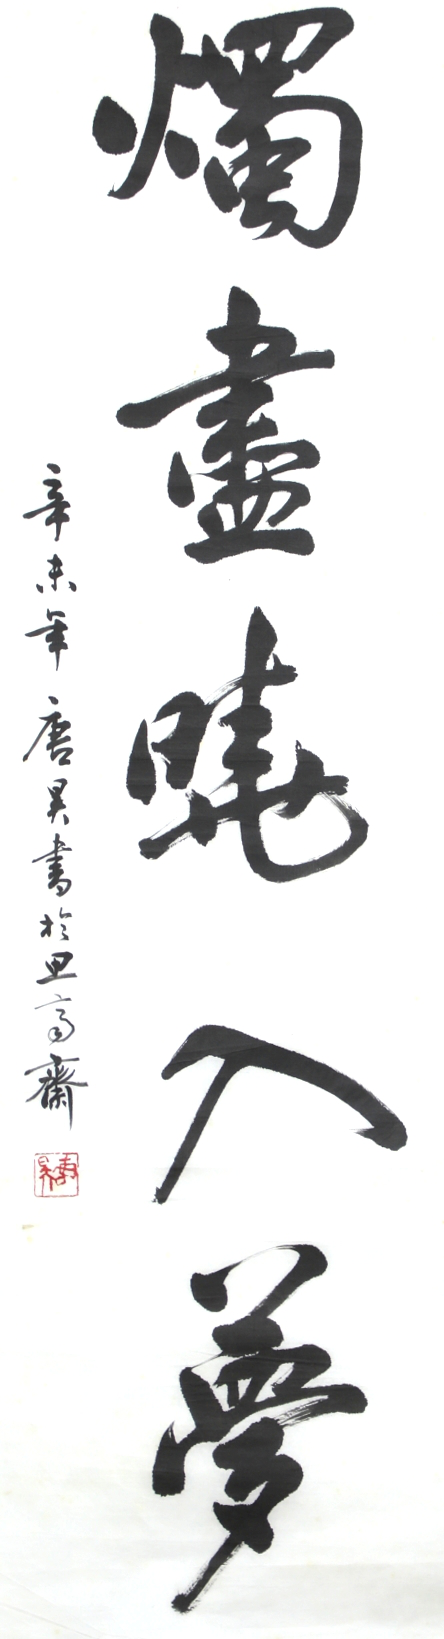 燭盡曉入夢
辛未年唐昊書於思高齋